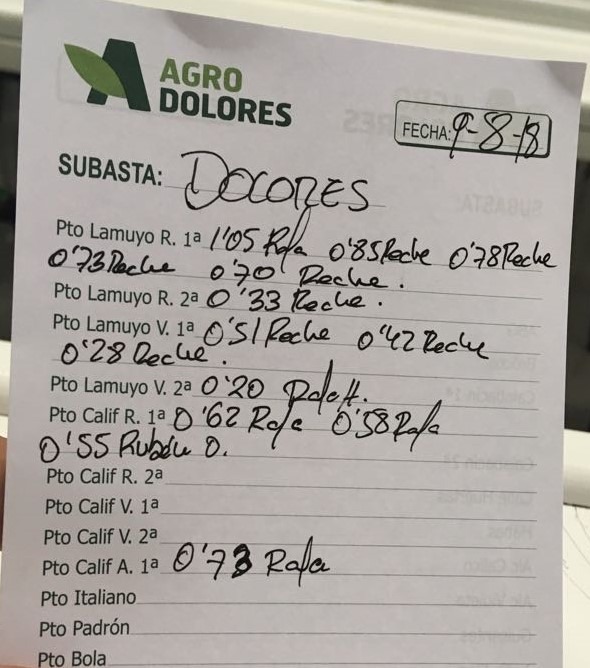 AGRO
DOLORES
FECHA: 9-8-18
SUBASTA: DOLORES
Pto Lamuyo R. 1ª 1'05 Rafa 0'85 Reche 0'78 Reche
0'73 Reche 0'70 Reche.
Pto Lamuyo R. 2ª 0'33 Reche.
Pto Lamuyo V. 1ª 0'51 Reche 0'42 Reche
0'28 Reche.
Pto Lamuyo V. 2ª 0'20 Rafa H.
Pto Calif R. 1ª 0'62 Rafa 0'58 Rafa
0'55 Rubén O.
Pto Calif R. 2ª
Pto Calif V. 1ª
Pto Calif V. 2ª
Pto Calif A. 1ª 0'73 Rafa
Pto Italiano
Pto Padrón
Pto Bola